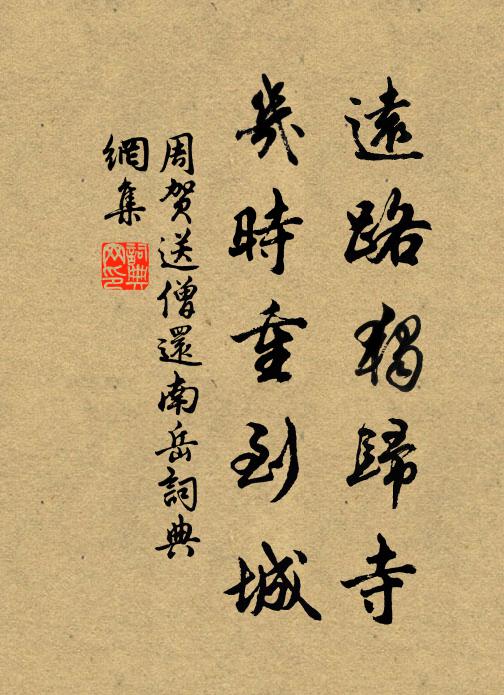 遠路獨歸寺
幾時重到城
周賀送僧還南岳詞典
網集
詞典
网印